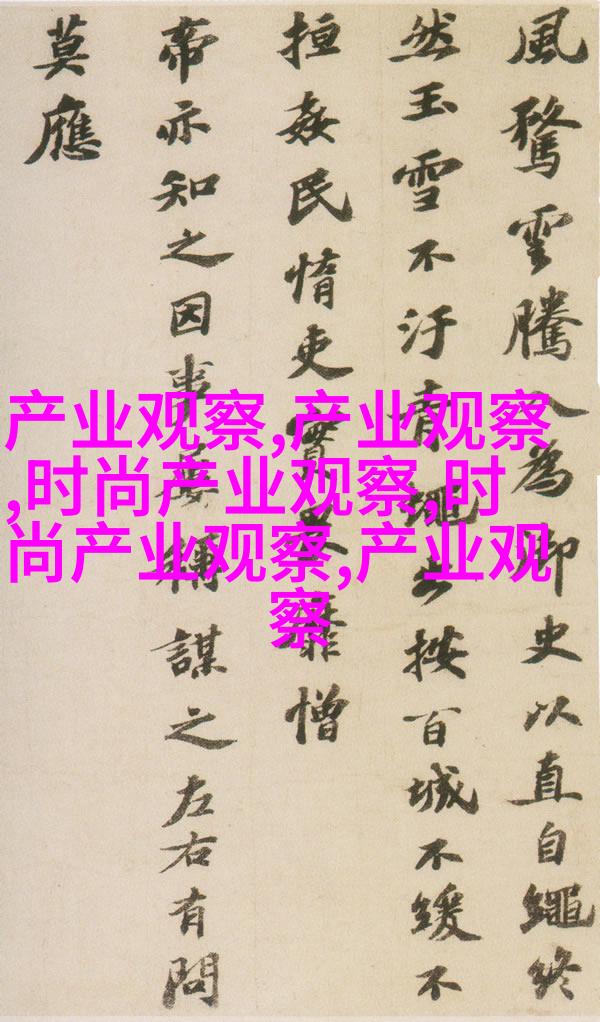 風騖雲騰入為御史以直自繩終
然玉雪不汙青蠅出按百城不緩不
搄姦民惰吏實畏靡憎
帝亦知之因事屢稱謀之左右有問
莫應
产业观察,产业观察
,时尚产业观察,时
尚产业观察,产业观
察